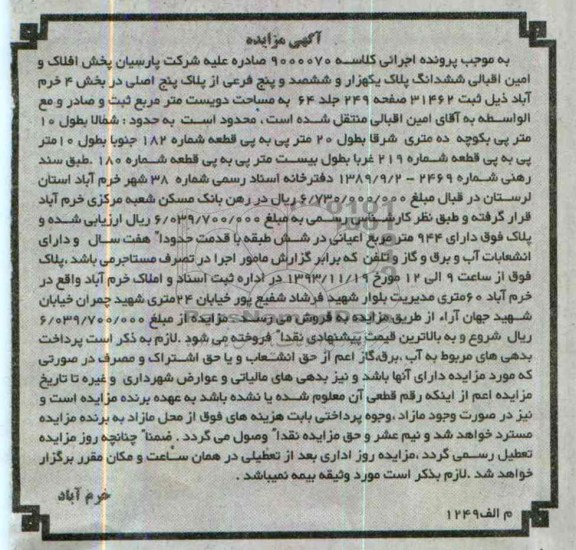 آگهی مزایده
به موجب پرونده اجرائی کلاسه ۹۰۰۰۰۷۰ صادره علیه شرکت پارسیان پخش افلاک و
امین اقبالی ششدانگ پلاک یکهزار و ششصد و پنج فرعی از پلاک پنج اصلی در بخش ۴ خرم
آباد ذیل ثبت ۳۱۴۶۲ صفحه ۲۴۹ جلد ۶۴ به مساحت دویست متر مربع ثبت و صادر و مع
الواسطه به آقای امین اقبالی منتقل شده است ، محدود است به حدود : شمالا بطول ۱۰
متر پی بکوچه ده متری شرقا بطول ۲۰ متر پی به پی قطعه شماره ۱۸۲ جنوبا بطول ۱۰متر
پی به پی قطعه شماره ۲۱۹ غربا بطول بیست متر پی به پی قطعه شماره ۱۸۰ .طبق سند
رهنی شماره ۲۴۶۹ – ۱۳۸۹/۹/۲ دفترخانه اسناد رسمی شماره ۳۸ شهر خرم آباد استان
لرستان در قبال مبلغ ۶/۷۳۲/۰۰۰/۰۰۰ ریال در رهن بانک مسکن شعبه مرکزی خرم آباد
قرار گرفته و طبق نظر کارشناس رسمی به مبلغ ۶/۰۳۹/۷۰۰/۰۰۰ ریال ارزیابی شده و
پلاک فوق دارای ۹۴۴ متر مربع اعیانی در شش طبقه با قدمت حدودا" هفت سال و دارای
انشعابات آب و برق و گاز و تلفن که برابر گزارش مامور اجرا در تصرف مستاجرمی باشد ،پلاک
فوق از ساعت ۹ الی ۱۲ مورخ ۱۳۹۳/۱۱/۱۹ در اداره ثبت اسناد و املاک خرم آباد واقع در
خرم آباد ۶۰متری مدیریت بلوار شهید فرشاد شفیع پور خیابان ۲۴متری شهید چمران خیابان
شهید جهان آراء از طریق مزایده به فروش می رسد . مزایده از مبلغ ۶/۰۳۹/۷۰۰/۰۰۰
ریال شروع و به بالاترین قیمت پیشنهادی نقدا" فروخته می شود .لازم به ذکر است پرداخت
بدهی های مربوط به آب ،برق،گاز اعم از حق انشعاب و یا حق اشتراک و مصرف در صورتی
که مورد مزایده دارای آنها باشد و نیز بدهی های مالیاتی و عوارض شهرداری و غیره تا تاریخ
مزایده اعم از اینکه رقم قطعی آن معلوم شده یا نشده باشد به عهده برنده مزایده است و
نیز در صورت وجود مازاد ،وجوه پرداختی بابت هزینه های فوق از محل مازاد به برنده مزایده
مسترد خواهد شد و نیم عشر و حق مزایده نقدا" وصول می گردد . ضمنا" چنانچه روز مزایده
تعطیل رسمی گردد ،مزایده روز اداری بعد از تعطیلی در همان ساعت و مکان مقرر برگزار
خواهد شد .لازم بذکر است مورد وثیقه بیمه نمیباشد .
خرم آباد
م الف۱۲۴۹